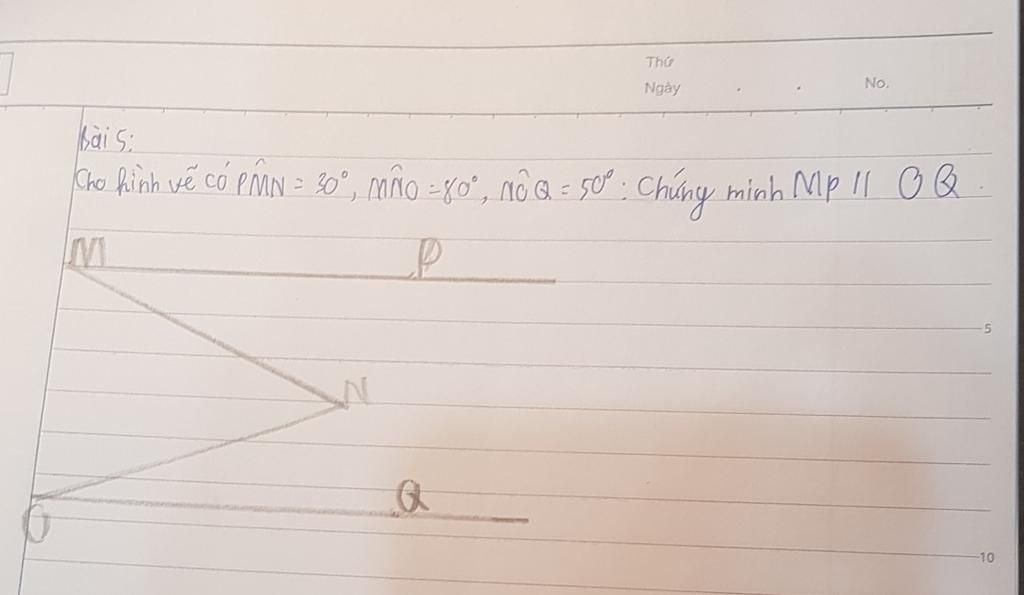 Thứ
Ngày . . No.
Bài 5:
Cho hình vẽ có PM̂N = 30°, MN̂O = 80°, NÔQ = 50°: Chứng minh MP // OQ.
M P
5
N
Q
O
10